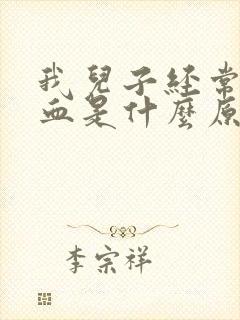 我兒子經常
血是什麼原
李宗祥